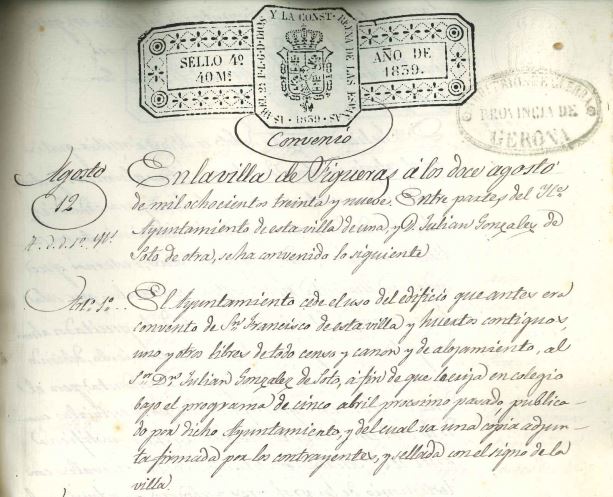 SELLO 4º
40 Mˢ
ISABEL 2ª P. L. G. D. DIOS Y LA CONST. REINA DE LAS ESPAÑAS
· 1839 ·
AÑO DE
1839.
PROVINCIA DE
GERONA
Convenio
Agosto
12
En la villa de Figueras á los doce agosto
de mil ochocientos treinta y nueve. Entre partes del Il.e
Ayuntamiento de esta villa de una, y D. Julian Gonzalez de
Soto de otra, se ha convenido lo siguiente
Art.º 1.º
El Ayuntamiento cede el uso del edificio que antes era
convento de Sⁿ Francisco de esta villa y huertos contiguos,
uno y otro libres de todo censo y canon y de alojamiento, al
Sor. Dⁿ Julian Gonzalez de Soto, á fin de que la erija en colegio
bajo el programa de cinco abril procsimo pasado, publica-
do por dicho Ayuntamiento, y del cual va una copia adjun-
ta firmada por los contrayentes, y sellada con el signo de la
villa.